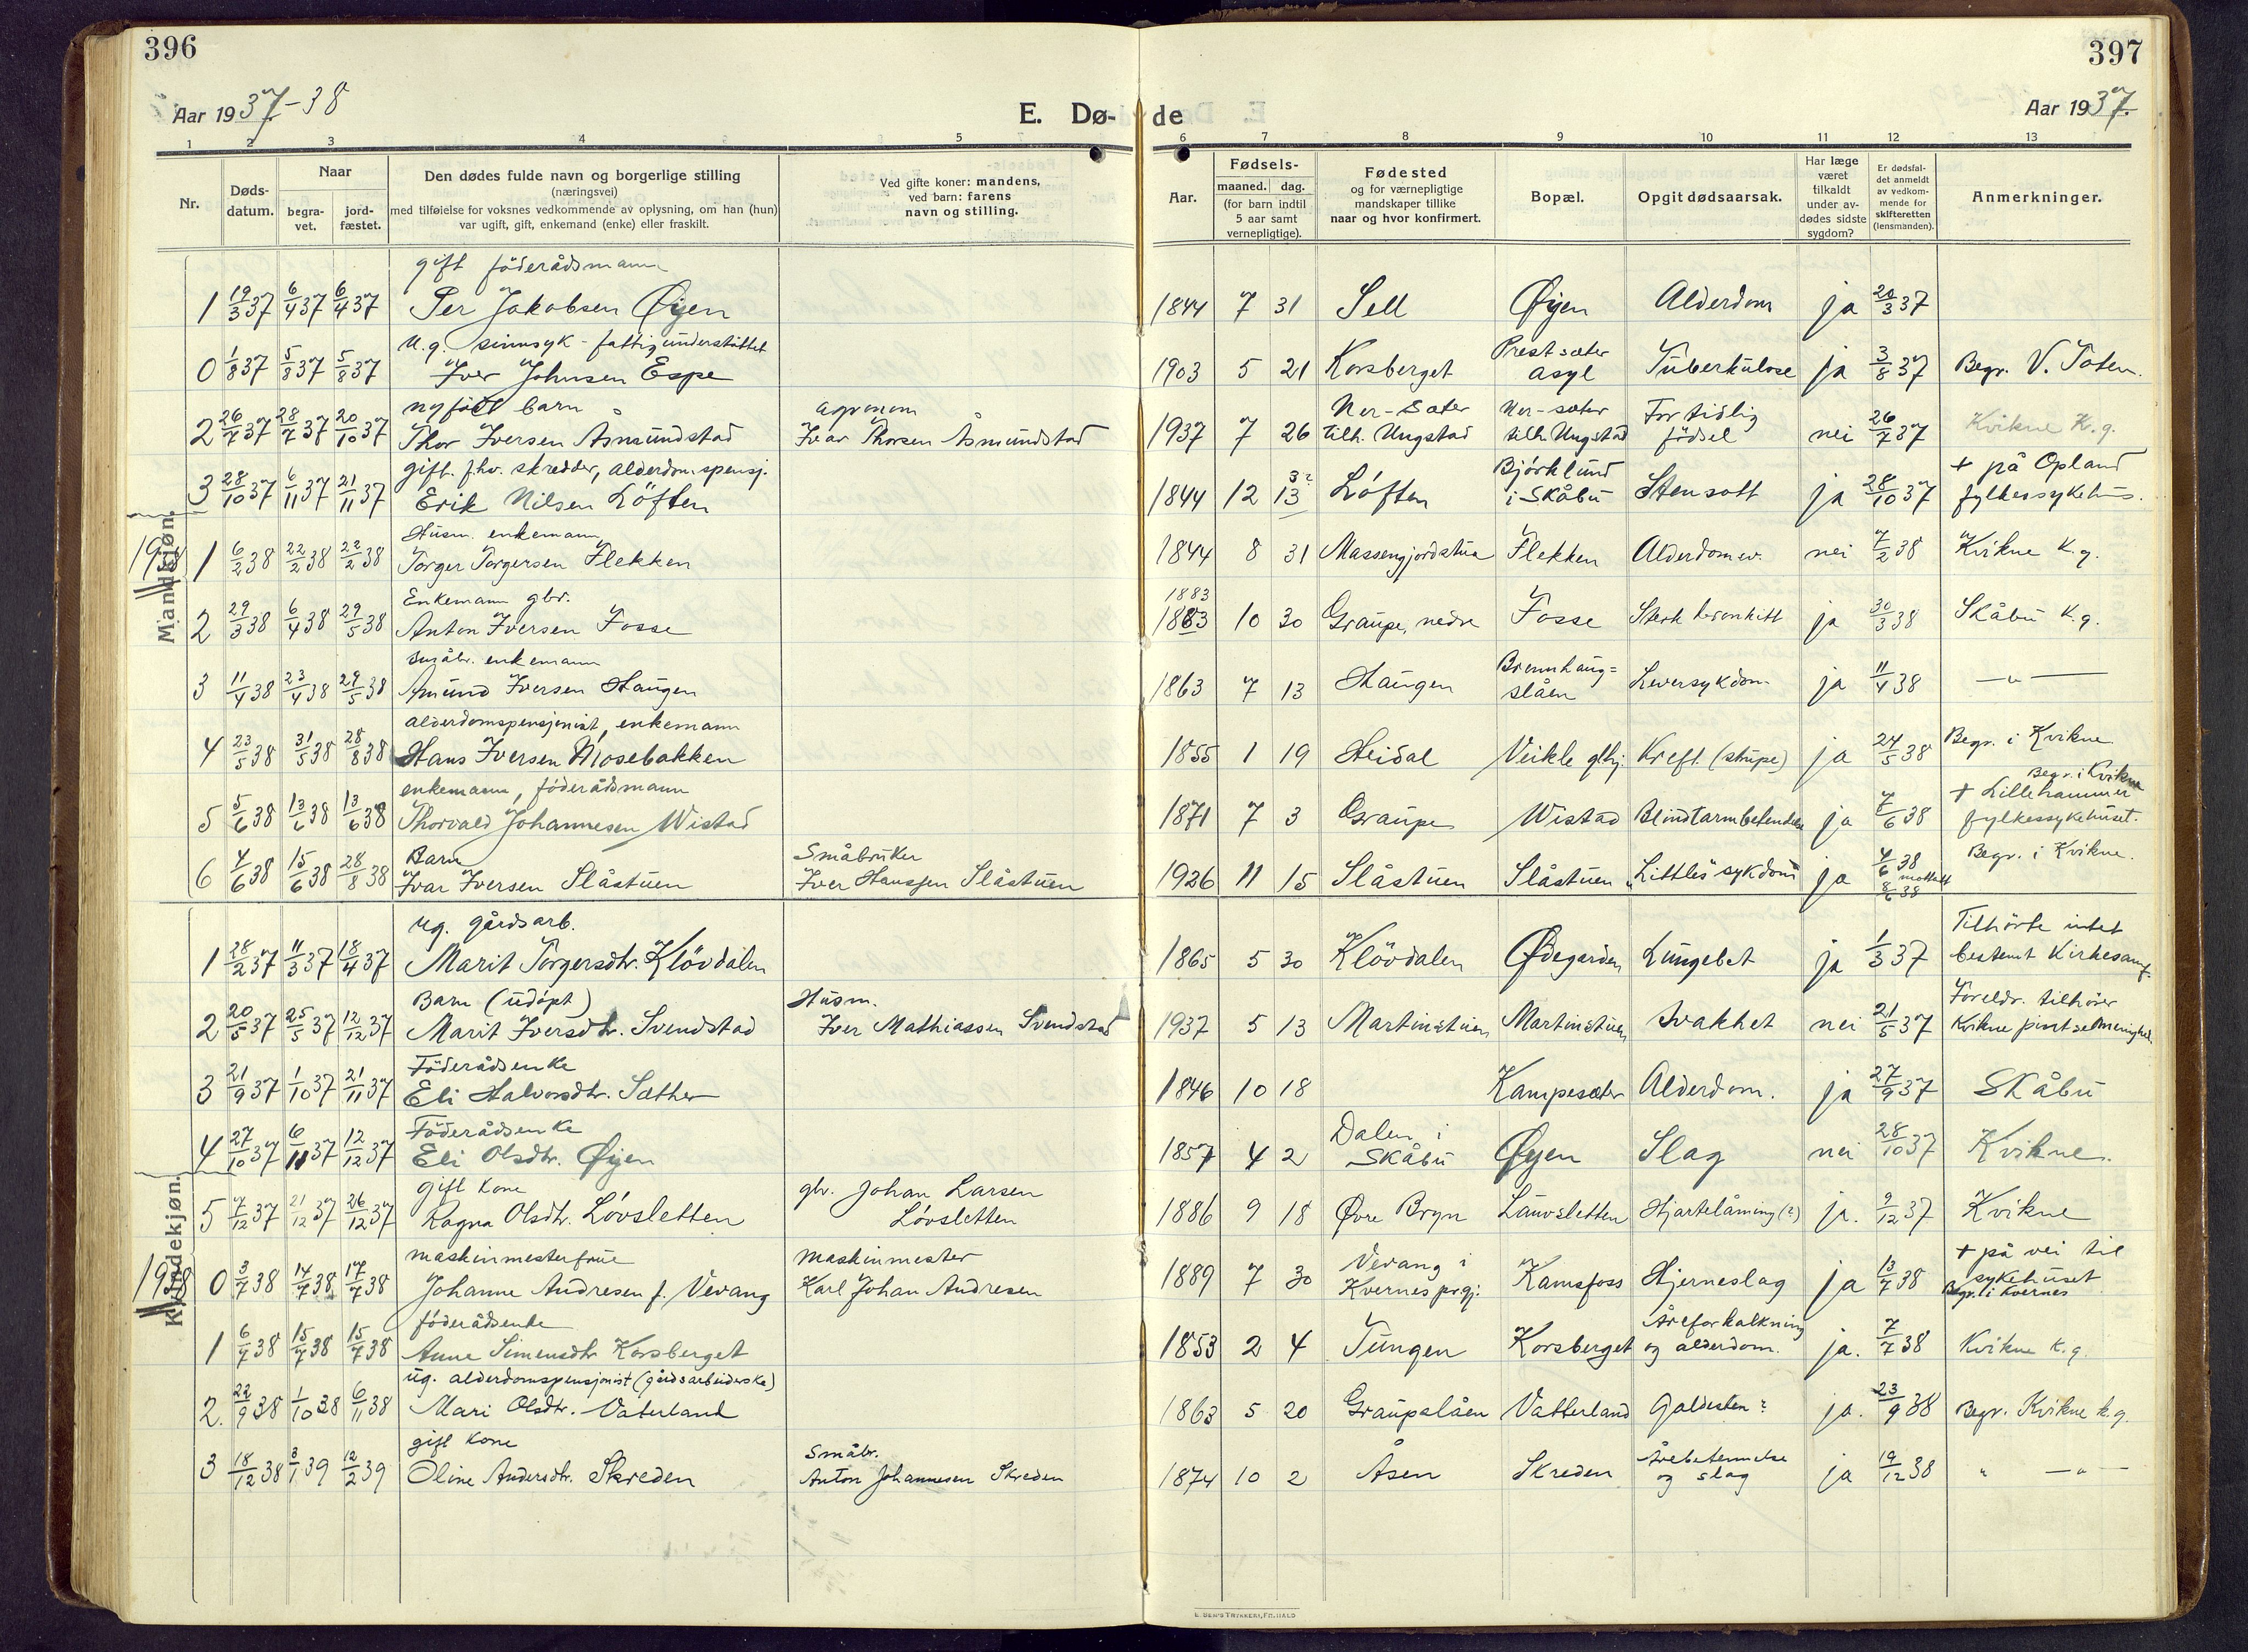 396
397
Aar 1937-38
E. Dø-
de
Aar 1937.
1 2 3 4 5 6 7 8 9 10 11 12 13
Nr.
Døds-
datum.
Naar
begra-
vet.
jord-
fæstet.
Den dødes fulde navn og borgerlige stilling
(næringsvei)
med tilføielse for voksnes vedkommende av oplysning, om han (hun)
var ugift, gift, enkemand (enke) eller fraskilt.
Ved gifte koner: mandens,
ved barn: farens
navn og stilling.
Aar.
Fødsels-
maaned. dag.
(for barn indtil
5 aar samt
vernepligtige).
Fødested
og for værnepligtige
mandskaper tillike
naar og hvor konfirmert.
Bopæl.
Opgit dødsaarsak.
Har læge
været
tilkaldt
under av-
dødes sidste
sygdom?
Er dødsfal-
det anmeldt
av vedkom-
mende for
skifteretten
(lensmanden).
Anmerkninger.
Mandkjøn.
gift föderådsmann
1 19/3 37 6/4 37 6/4 37 Per Jakobsen Øyen 1844 7 31 Sell Øyen Alderdom ja 20/3 37
u.g. sinnsyk - fattigunderstöttet Prestsæter
0 1/8 37 5/8 37 5/8 37 Iver Johnsen Espe 1903 5 21 Korsberget asyl Tuberkulose ja 3/8 37 Begr. V. Toten.
nyfödt barn agronom Ner-Sæter Ner-sæter For tidlig
2 26/7 37 28/7 37 20/10 37 Thor Iversen Åsmundstad Ivar Thorsen Åsmundstad 1937 7 26 tilh. Ungstad tilh. Ungstad födsel nei 26/7 37 Kvikne K.g.
gift. fhv. skredder, alderdomspensj. Björklund + på Opland
3 28/10 37 6/11 37 21/11 37 Erik Nilsen Löften 1844 12 13 3? Löften i Skåbu Stensott ja 28/10 37 fylkessykehus.
1938
Husm. enkemann
1 6/2 38 22/2 38 22/2 38 Torger Torgersen Flekken 1844 8 31 Massengjordstua Flekken Alderdomsv. nei 7/2 38 Kvikne K.g.
Enkemann gbr. 1883
2 29/3 38 6/4 38 29/5 38 Anton Iversen Fosse 1863 10 30 Graupe, nedre Fosse Sterk bronkitt ja 30/3 38 Skåbu K.g.
småbr. enkemann Brennhaug=
3 11/4 38 23/4 38 29/5 38 Amund Iversen Haugen 1863 7 13 Haugen slåen Leversykdom ja 11/4 38 —„—
alderdomspensjonist, enkemann
4 23/5 38 31/5 38 28/8 38 Hans Iversen Mosebakken 1855 1 19 Heidal Veikle glhj. Kreft (strupe) ja 24/5 38 Begr. i Kvikne
enkemann, föderådsmann Begr. i Kvikne
+ Lillehammer
5 5/6 38 13/6 38 13/6 38 Thorvald Johannesen Wistad 1871 7 3 Graupe Wistad Blindtarmbetendelse ja 7/6 38 fylkessykehuset.
Barn Småbruker
6 4/6 38 15/6 38 28/8 38 Ivar Iversen Slåstuen Iver Hanssen Slåstuen 1926 11 15 Slåstuen Slåstuen „Littles" sykdom ja 4/6 38 mottatt 8/6 38 Begr. i Kvikne.
Kvindekjøn.
ug. gårdsarb. Tilhörte intet
1 28/2 37 11/3 37 18/4 37 Marit Torgersdtr. Klövdalen 1865 5 30 Klövdalen Ødegarden Lungebet ja 1/3 37 bestemt Kirkesamf.
Barn (udöpt) Husm. Foreldr. tilhörer
2 20/5 37 25/5 37 12/12 37 Marit Iversdtr. Svendstad Iver Mathiassen Svendstad 1937 5 13 Martinstuen Martinstuen Svakhet nei 21/5 37 Kvikne pinsemenighet.
Föderådsenke
3 21/9 37 1/10 37 21/11 37 Eli Halvorsdtr. Sæther 1846 10 18 Kampesæter Alderdom. ja 27/9 37 Skåbu
Föderådsenke Dalen i
4 27/10 37 6/11 37 12/12 37 Eli Olsdtr. Øyen 1857 4 2 Skåbu Øyen Slag nei 28/10 37 Kvikne.
gift kone gbr. Johan Larsen
5 7/12 37 21/12 37 26/12 37 Ragna Olsdtr. Lövsletten Lövsletten 1886 9 18 Øvre Bryn Lauvsletten Hjartelåming (?) ja. 9/12 37 Kvikne
1938
maskinmesterfrue maskinmester Vevang i + på vei til
0 3/7 38 14/7 38 17/7 38 Johanne Andresen f. Vevang Karl Johan Andresen 1889 7 30 Kvernes prgj. Kamsfoss Hjerneslag ja 13/7 38 sykehuset
Begr. i Kvernes
föderådsenke Åreforkalkning
1 6/7 38 15/7 38 15/7 38 Anne Simensdtr Korsberget 1853 2 4 Tungen Korsberget og alderdom. ja. 7/7 38 Kvikne K.g.
ug. alderdomspensjonist (gårdsarbeiderske)
2. 22/9 38 1/10 38 6/11 38 Mari Olsdtr. Vaterland 1863 5 20 Graupslåen Vatterland Galdesten? ja. 23/9 38 Begr. Kvikne k.g.
gift kone Småbr. Årebetennelse
3 18/12 38 3/1 39 12/2 39 Oline Andersdtr. Skreden Anton Johannesen Skreden 1874 10 2 Åsen Skreden og slag ja 19/12 38 „ —„—